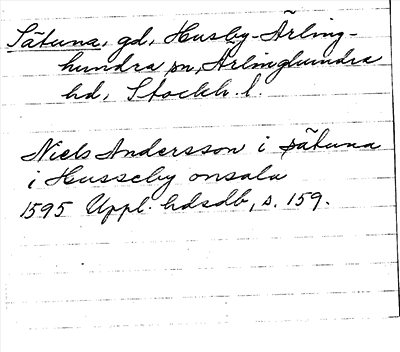 Såtuna, gd, Husby-Ärling-
hundra sn, Ärlinghundra
hd, Stockh. l.
Niels Andersson i såtuna
i Husseby onsala
1595 Uppl. hdsdb, s. 159.